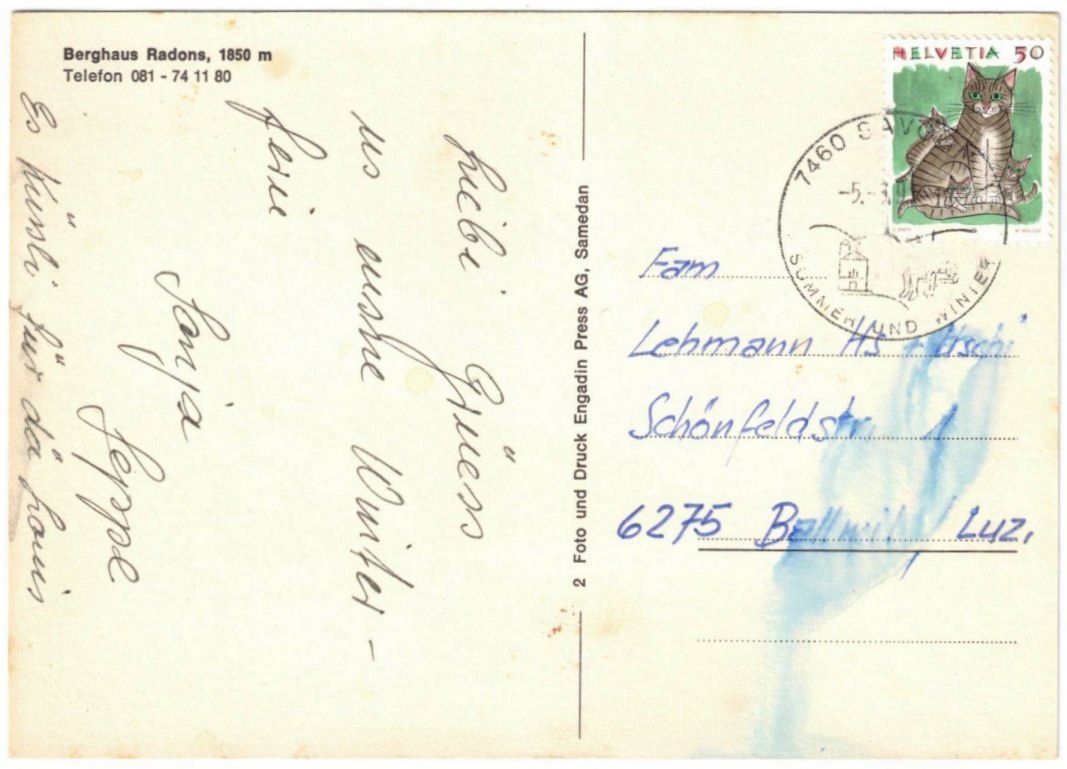 Berghaus Radons, 1850 m
Telefon 081 - 74 11 80
Liebi Grüess
us eusne Winter-
ferie
Sonja
Seppe
Es Küssli für dä Louis
2 Foto und Druck Engadin Press AG, Samedan
HELVETIA 50
7460 SAV
-5.-
SOMMER UND WINTER
Fam
Lehmann Hs +
Schönfeldstr.
6275 Ballwil Luz.